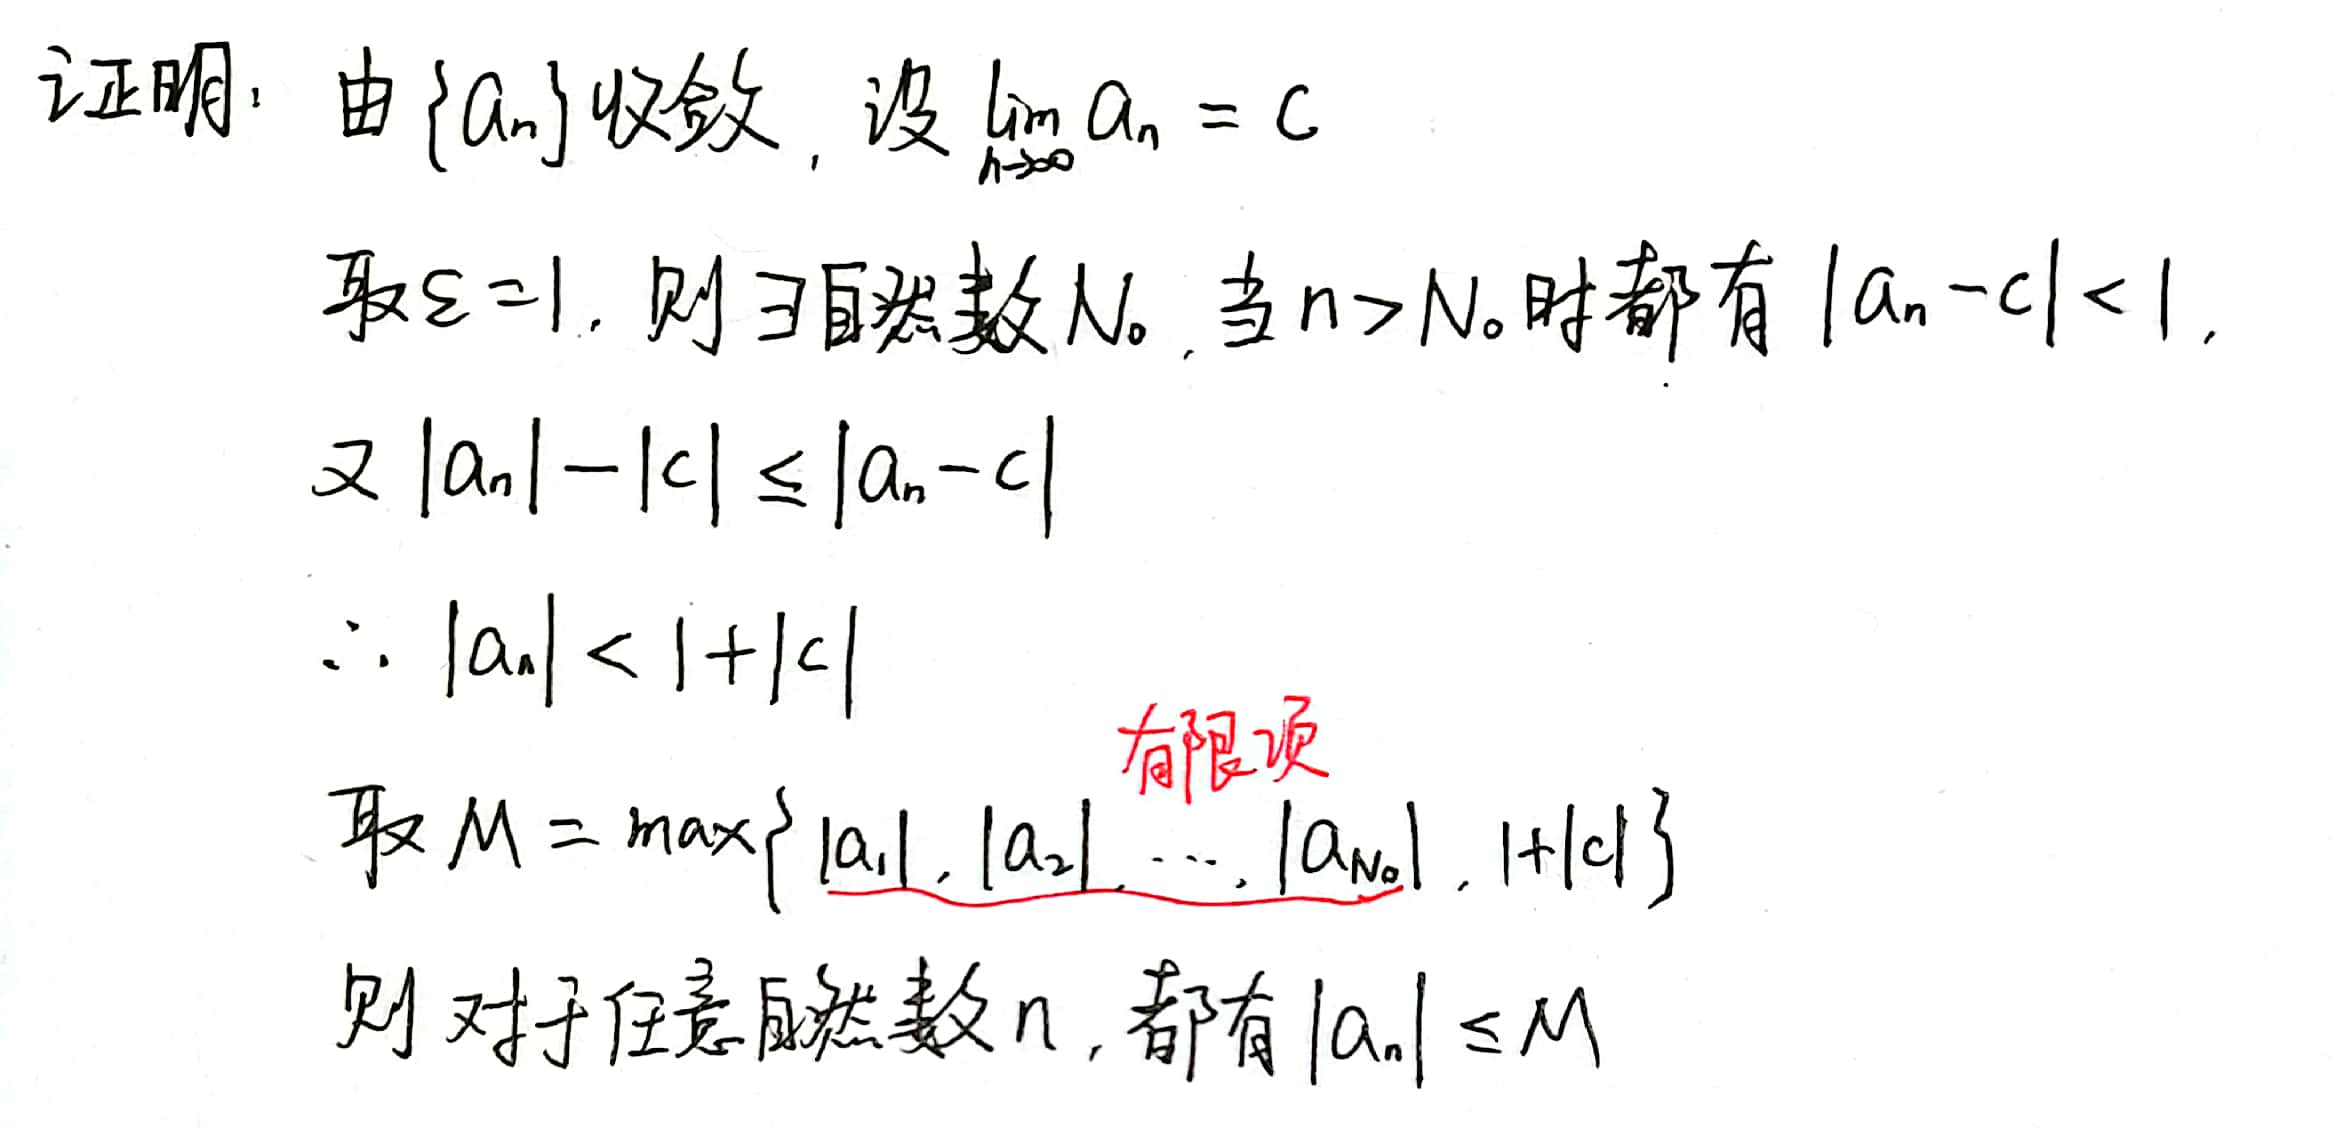 证明: 由{aₙ}收敛, 设 lim aₙ = c
n→∞
取ε=1, 则∃自然数N₀, 当n>N₀时都有|aₙ-c|<1,
又|aₙ|-|c|≤|aₙ-c|
∴ |aₙ|<1+|c|
有限项
取M=max{|a₁|, |a₂|, …, |a_N₀|, 1+|c|}
则对于任意自然数n, 都有|aₙ|≤M